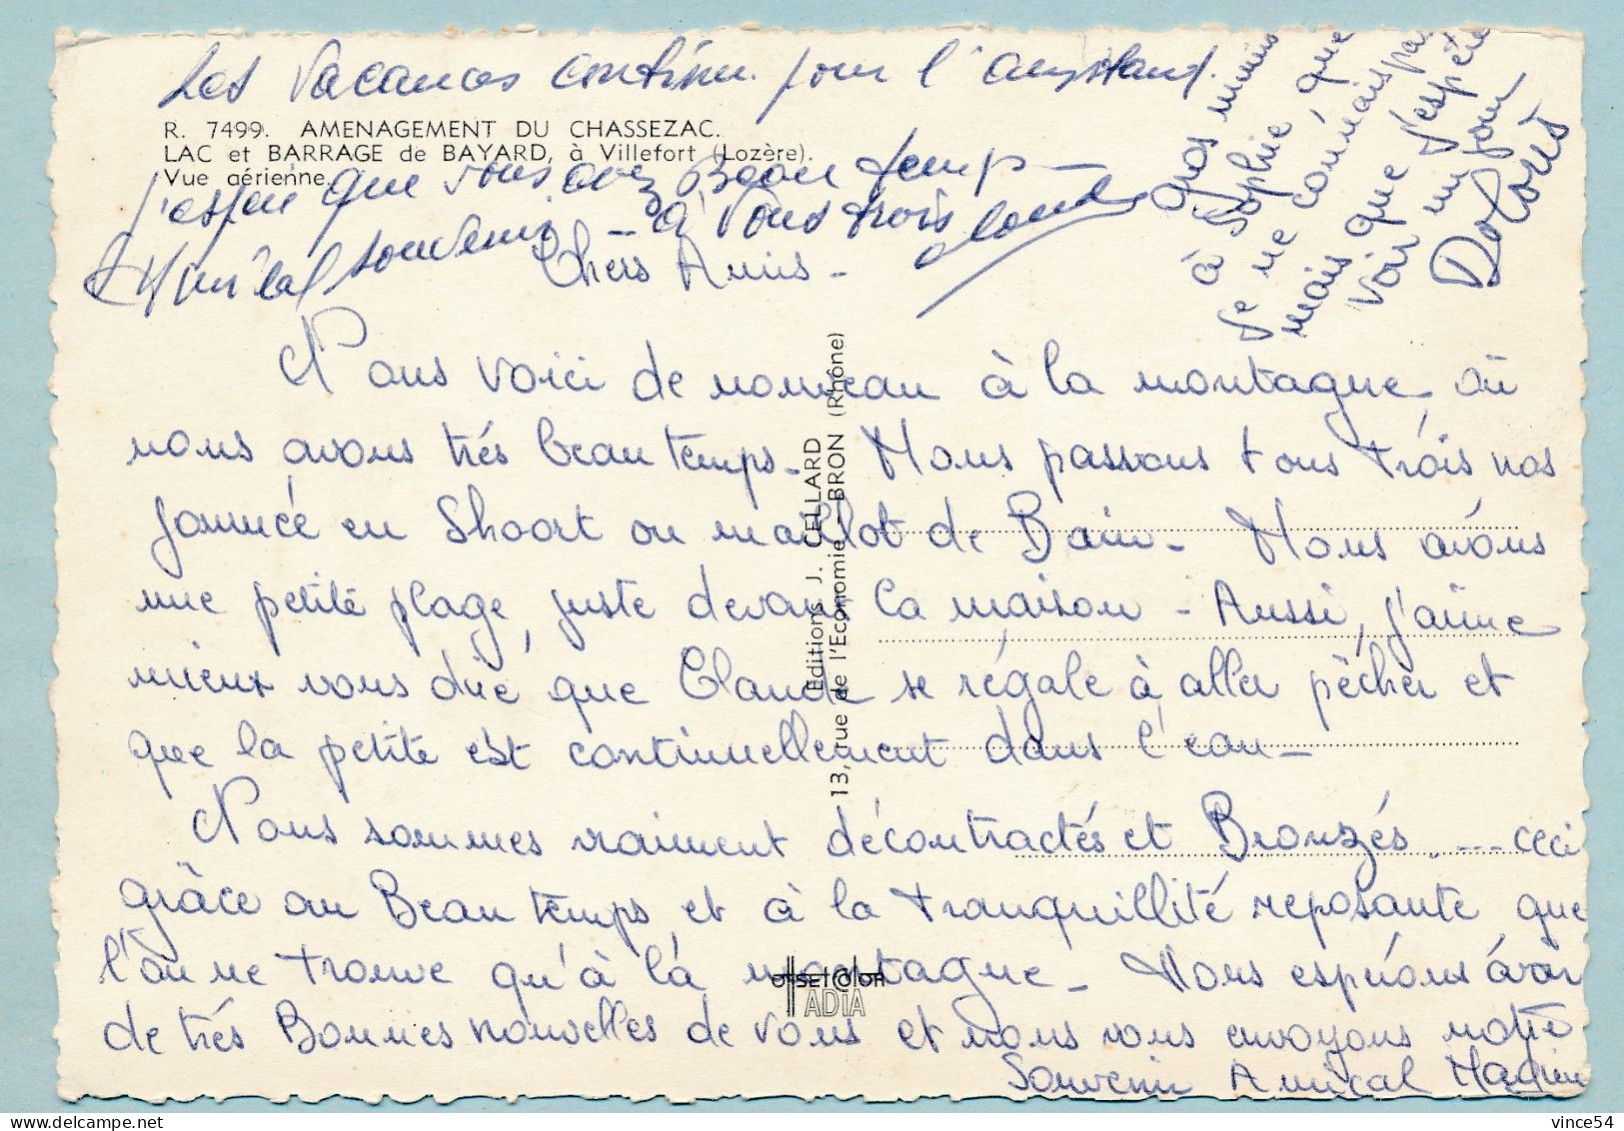 Les Vacances continu. pour l'
R. 7499. AMENAGEMENT DU CHASSEZAC.
LAC et BARRAGE de BAYARD, à Villefort (Lozère).
Vue aérienne.
J'espère que vous avez Beau temp -
Amical souvenir - à vous trois Claude
Gros mimis
à Sophie que
Je ne connais pas
mais que j'espère
voir un jour
Dolorès
Chers Amis -
Nous voici de nouveau à la montagne où
nous avons trés beau temps - Nous passons tous trois nos
journée en Shoort ou maillot de Bain - Nous avons
une petite plage, juste devant la maison - Aussi, j'aime
mieux vous dire que Claude se régale à aller pêcher et
que la petite est continuellement dans l'eau -
Nous sommes vraiment décontractés et Bronzés. --- ceci
grâce au Beau temps et à la tranquillité reposante que
l'on ne trouve qu'à la montagne - Nous espérons avoir
de trés Bonnes nouvelles de vous et nous vous envoyons notre
Souvenir Amical
Editions J. CELLARD
13, rue de l'Economie - BRON (Rhône)
OFFSET COLOR
ADIA
vince54